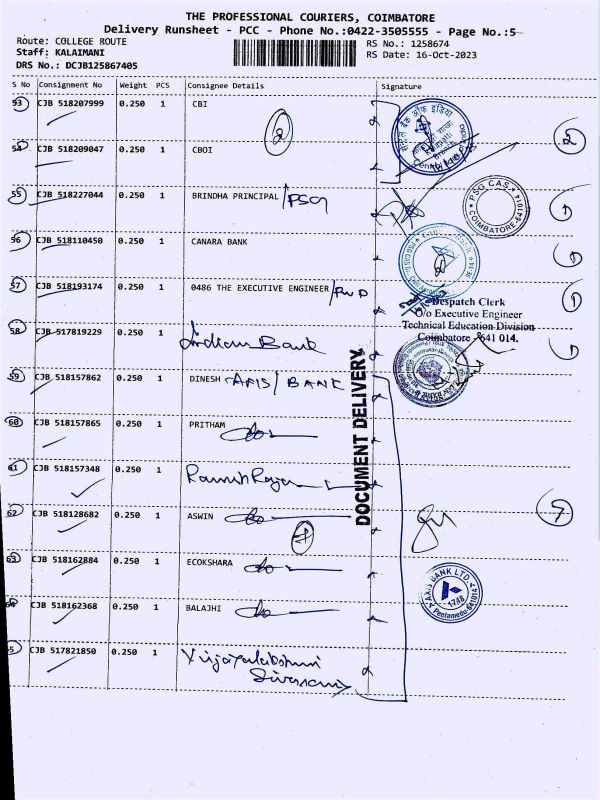 THE PROFESSIONAL COURIERS, COIMBATORE
Delivery Runsheet - PCC - Phone No.:0422-3505555 - Page No.:5
Route: COLLEGE ROUTE
RS No.: 1258674
Staff: KALAIMANI
RS Date: 16-Oct-2023
DRS No.: DCJB125867405
S No Consignment No Weight PCS Consignee Details Signature
53 CJB 518207999 0.250 1 CBI
2
2
54 CJB 518209047 0.250 1 CBOI
55 CJB 518227044 0.250 1 BRINDHA PRINCIPAL/PSG
PSG CAS
COIMBATORE-641014
1
56 CJB 518110450 0.250 1 CANARA BANK
1
57 CJB 518193174 0.250 1 0486 THE EXECUTIVE ENGINEER/PWD
1
Despatch Clerk
O/o Executive Engineer
Technical Education Division
Coimbatore - 641 014.
58 CJB 517819229 0.250 1 Indian Bank
1
59 CJB 518157862 0.250 1 DINESH AXIS/BANK
DOCUMENT DELIVERY
60 CJB 518157865 0.250 1 PRITHAM
61 CJB 518157348 0.250 1
62 CJB 518128682 0.250 1 ASWIN
7
7
63 CJB 518162884 0.250 1 ECOKSHARA
AXIS BANK LTD.
1748
Peelamedu-641014
64 CJB 518162368 0.250 1 BALAJHI
65 CJB 517821850 0.250 1 Vijayalakshmi